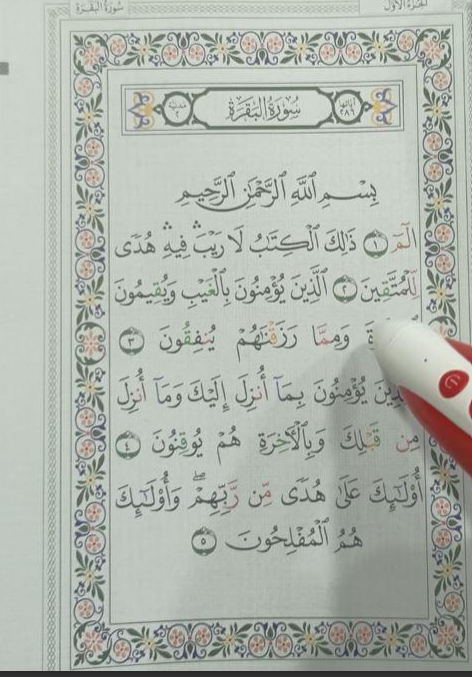 سُورَةُ البَقَرَةِ
الجُزءُ الأوَّل
مدنيّة ٢ سُورَةُ الْبَقَرَةِ آياتها ٢٨٦
بِسْمِ اللَّهِ الرَّحْمَٰنِ الرَّحِيمِ
الٓمٓ ١ ذَٰلِكَ الْكِتَٰبُ لَا رَيْبَ ۛ فِيهِ ۛ هُدًى
لِّلْمُتَّقِينَ ٢ الَّذِينَ يُؤْمِنُونَ بِالْغَيْبِ وَيُقِيمُونَ
وَمِمَّا رَزَقْنَٰهُمْ يُنفِقُونَ ٣
يُؤْمِنُونَ بِمَآ أُنزِلَ إِلَيْكَ وَمَآ أُنزِلَ
مِن قَبْلِكَ وَبِالْءَاخِرَةِ هُمْ يُوقِنُونَ ٤
أُو۟لَٰٓئِكَ عَلَىٰ هُدًى مِّن رَّبِّهِمْ ۖ وَأُو۟لَٰٓئِكَ
هُمُ الْمُفْلِحُونَ ٥